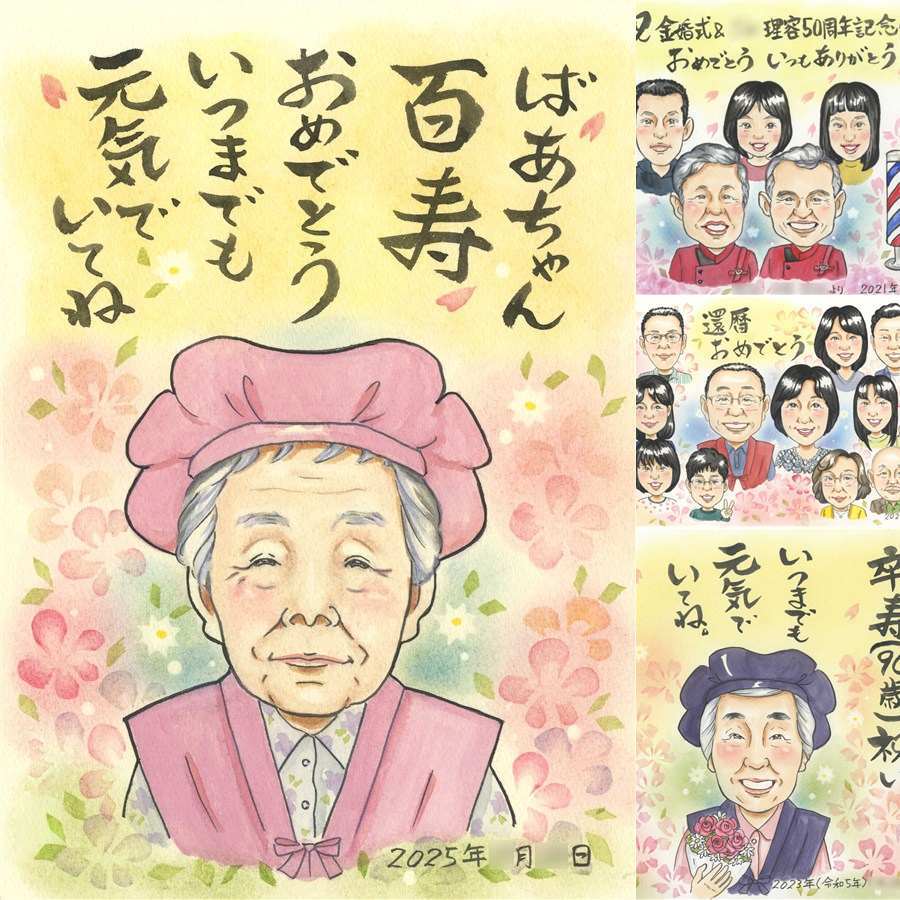 ばあちゃん
百寿
おめでとう
いつまでも
元気で
いてね
2025年 月 日
金婚式& 理容50周年記念
おめでとう いつもありがとう
より 2021年
還暦
おめでとう
卒寿(90歳)祝い
いつまでも
元気で
いてね。
2023年(令和5年)